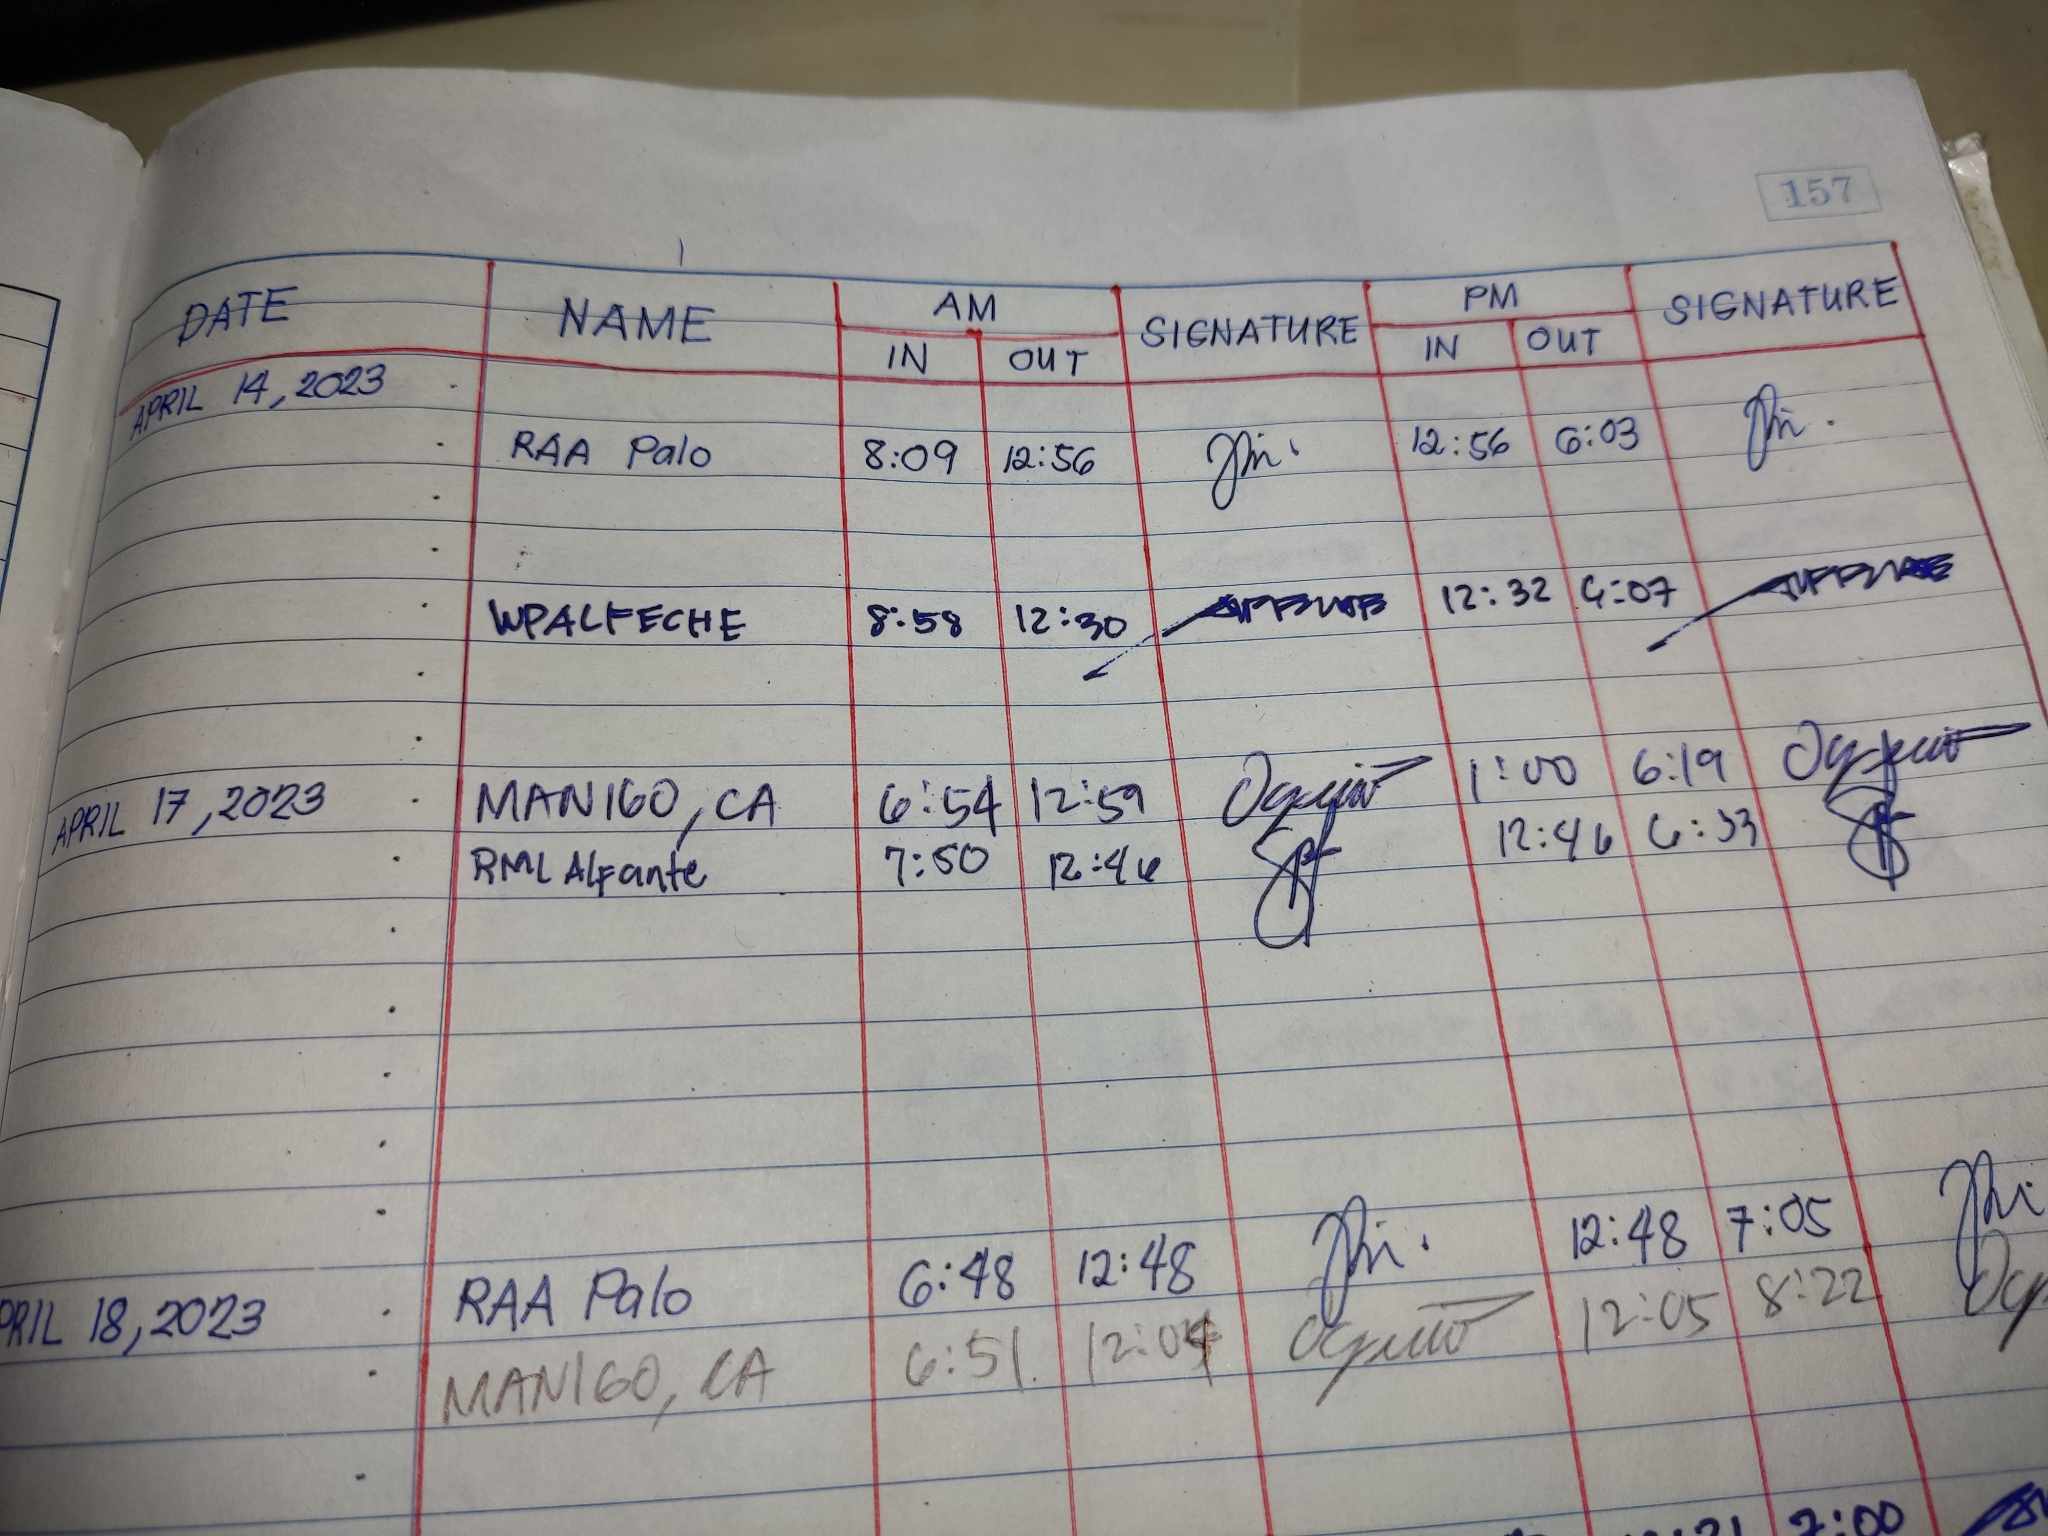 157
DATE NAME AM SIGNATURE PM SIGNATURE
IN OUT IN OUT
APRIL 14, 2023
RAA Palo 8:09 12:56 12:56 6:03
WPALFECHE 8:58 12:30 12:32 6:07
APRIL 17, 2023 MANIGO, CA 6:54 12:59 1:00 6:19
RML Alfante 7:50 12:46 12:46 6:33
PRIL 18, 2023 RAA Palo 6:48 12:48 12:48 7:05
MANIGO, CA 6:51 12:04 12:05 8:22
7:00